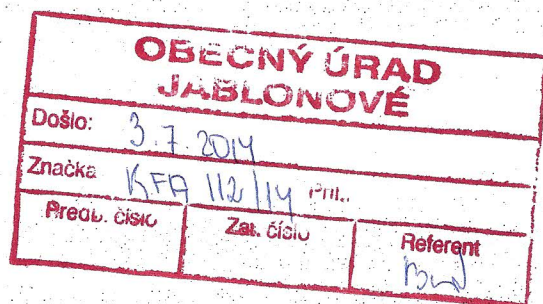 OBECNÝ ÚRAD
JABLONOVÉ
Došlo: 3.7.2014
Značka KFA 112/14 Príl.:
Predb. číslo Zar. číslo Referent